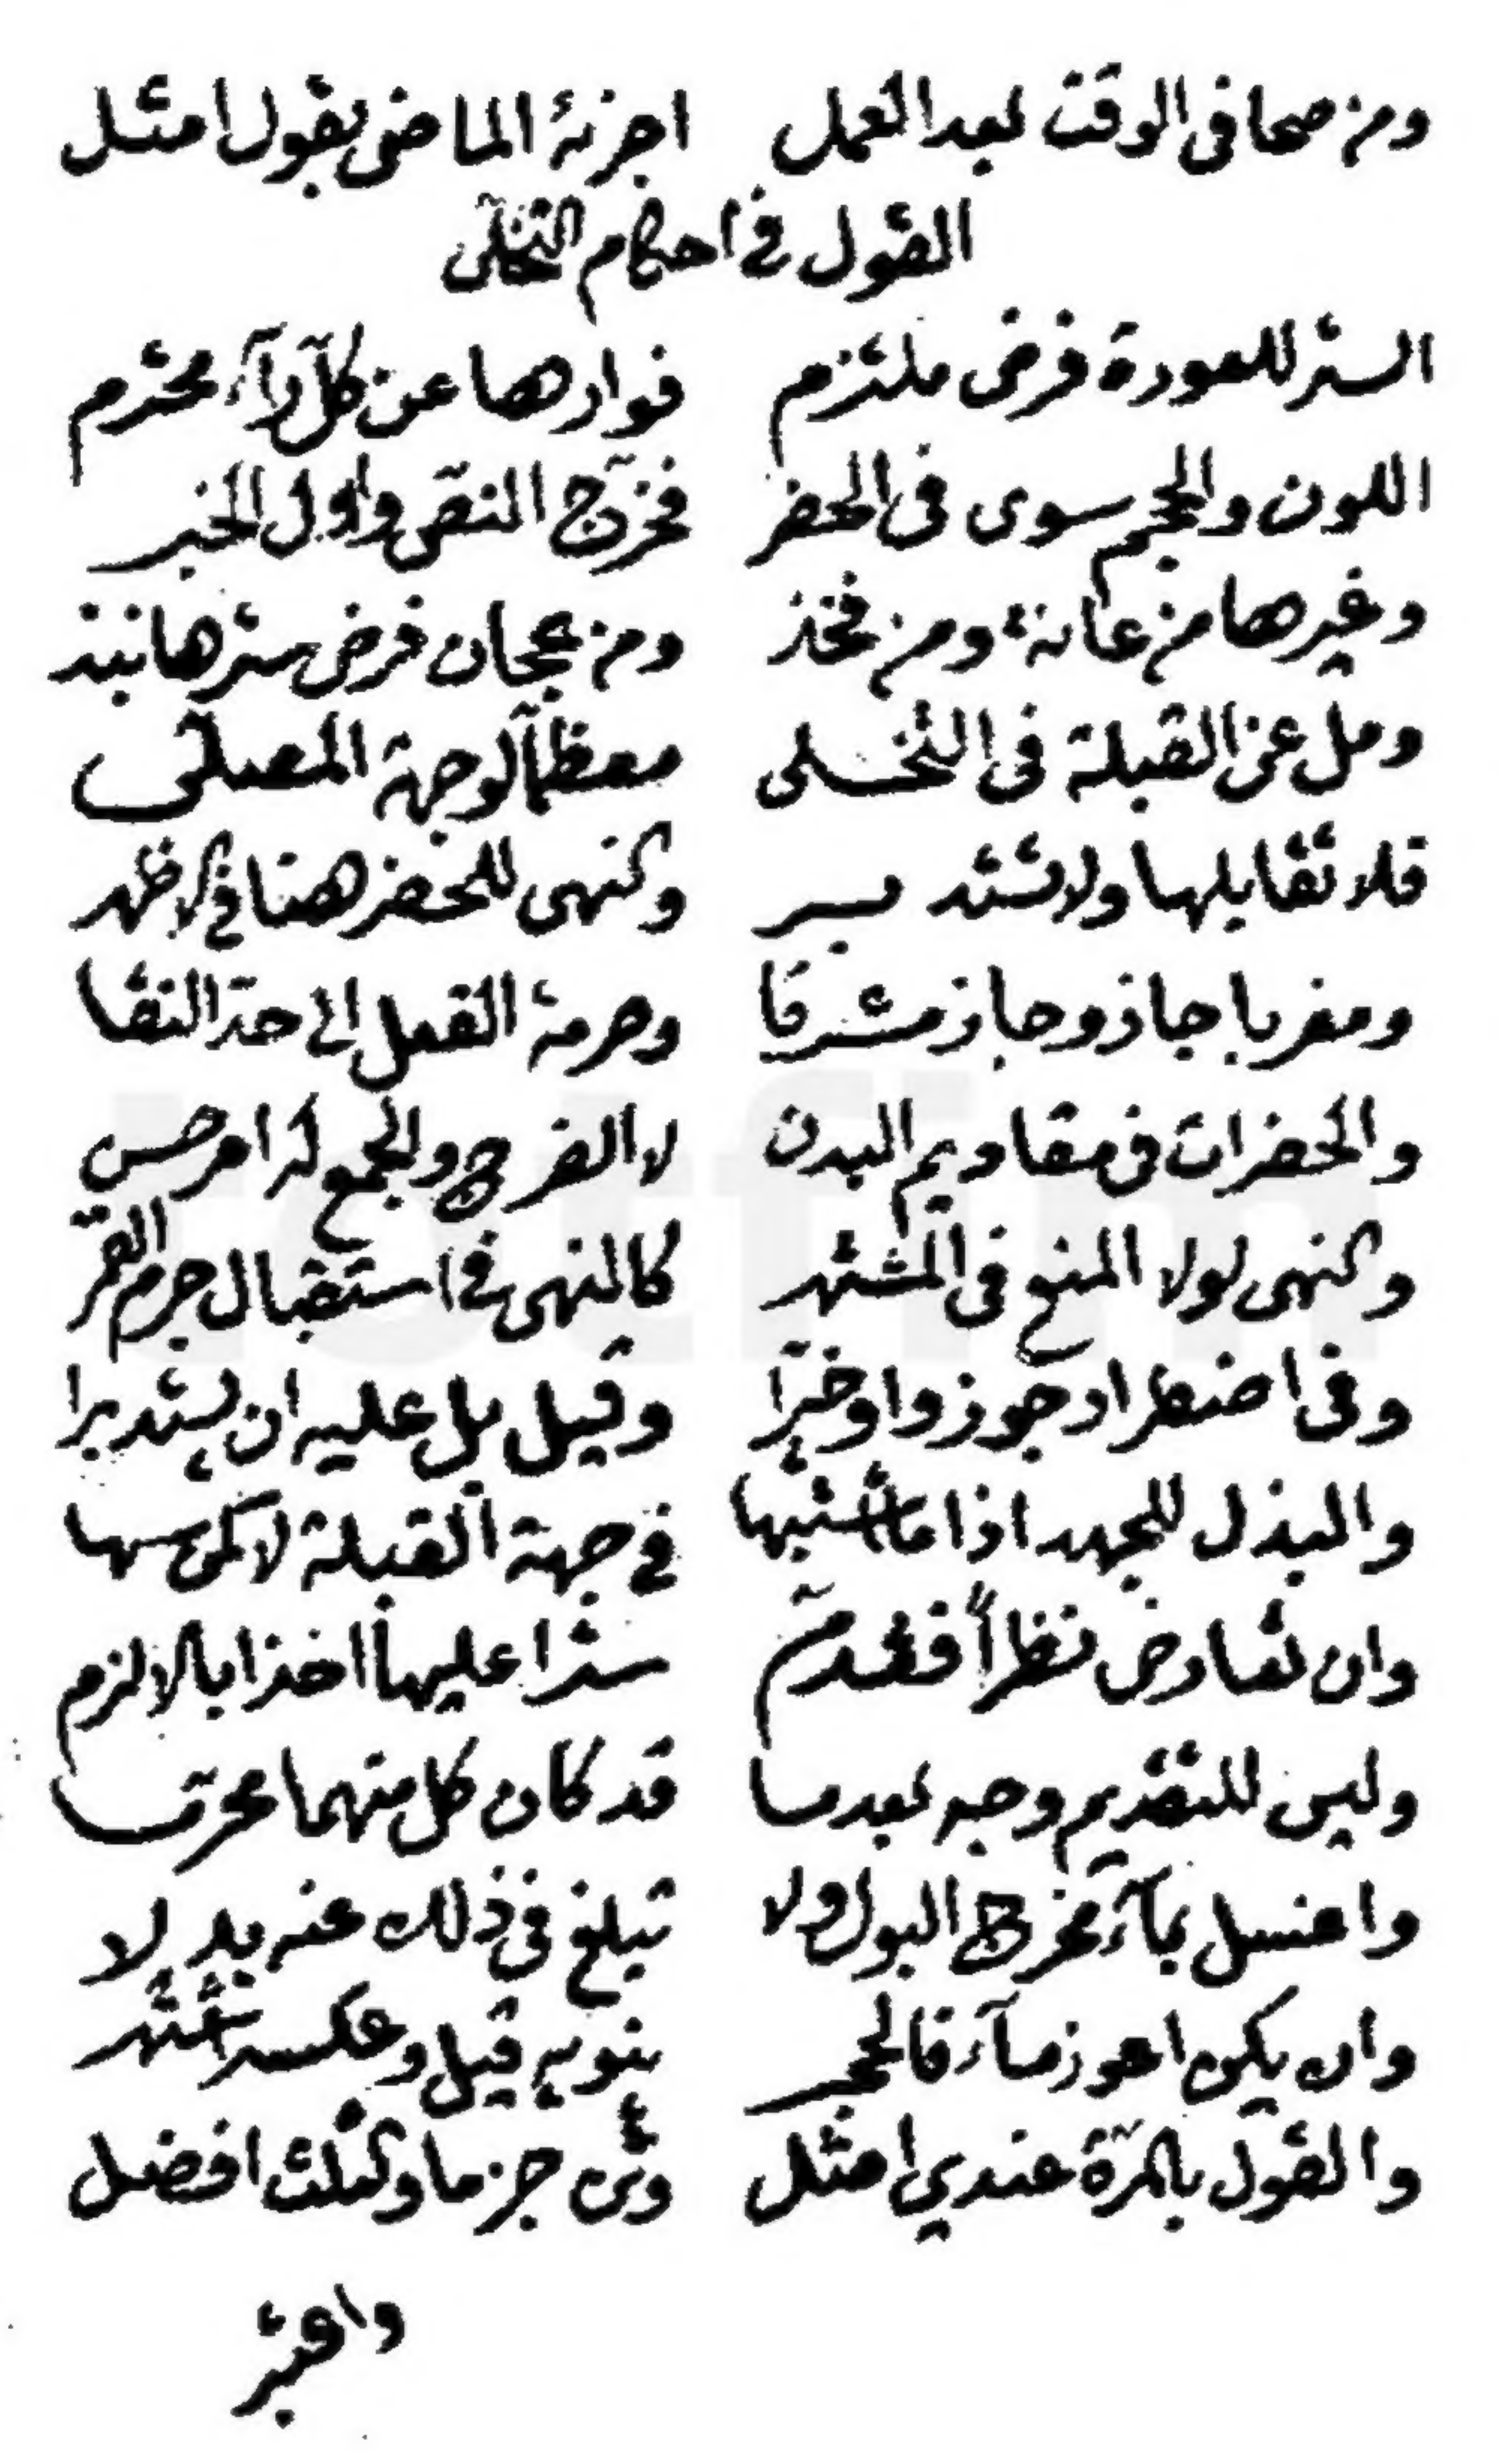 ومن صحا فى الوقت بعد العمل اجزئه الماضى بقول امثل
القول فى احكام التخلى
الستر للعورة فرض ملتزم فوارها عن كلّ راءٍ محترم
اللون والحجم سوى فى الحضر فخرّج النقى واول الخبر
وغيرها من عانة ومن فخذ ومن عجان فرض سترها نبذ
ومل عن القبلة فى التخلى معظّماً لوجهة المصلّى
فلا تقابلها ولا تستدبر والنهى للحضر هنا فى الاظهر
ومغربا جاز وجاز مشرقا وحرمة الفعل الى حدّ النقا
والحضرات فى مقاديم البدن لا الفرج والجمع له امر حسن
والنهى لولا المنع فى المشتهر كالنهى فى استقبال جرم القمر
وفى اضطرار جوزوا وخيّرا وقيل بل عليه ان يستدبرا
والبذل للجهد اذا ما اشتبها فى جهة القبلة لا كمن سها
وان تعارض نظراً فقدّم سترا عليها اخذا بالالزم
وليس للتقديم وجه بعدما قد كان كل منهما محرّما
واغسل بماء مخرج البول ولا تبلغ فى ذلك عنه بدلا
وان يكن اعوز ماء فالحجر ينويه قيل وعكسه اشتهر
والقول بالمرّة عندي امثل جزما والثلث افضل